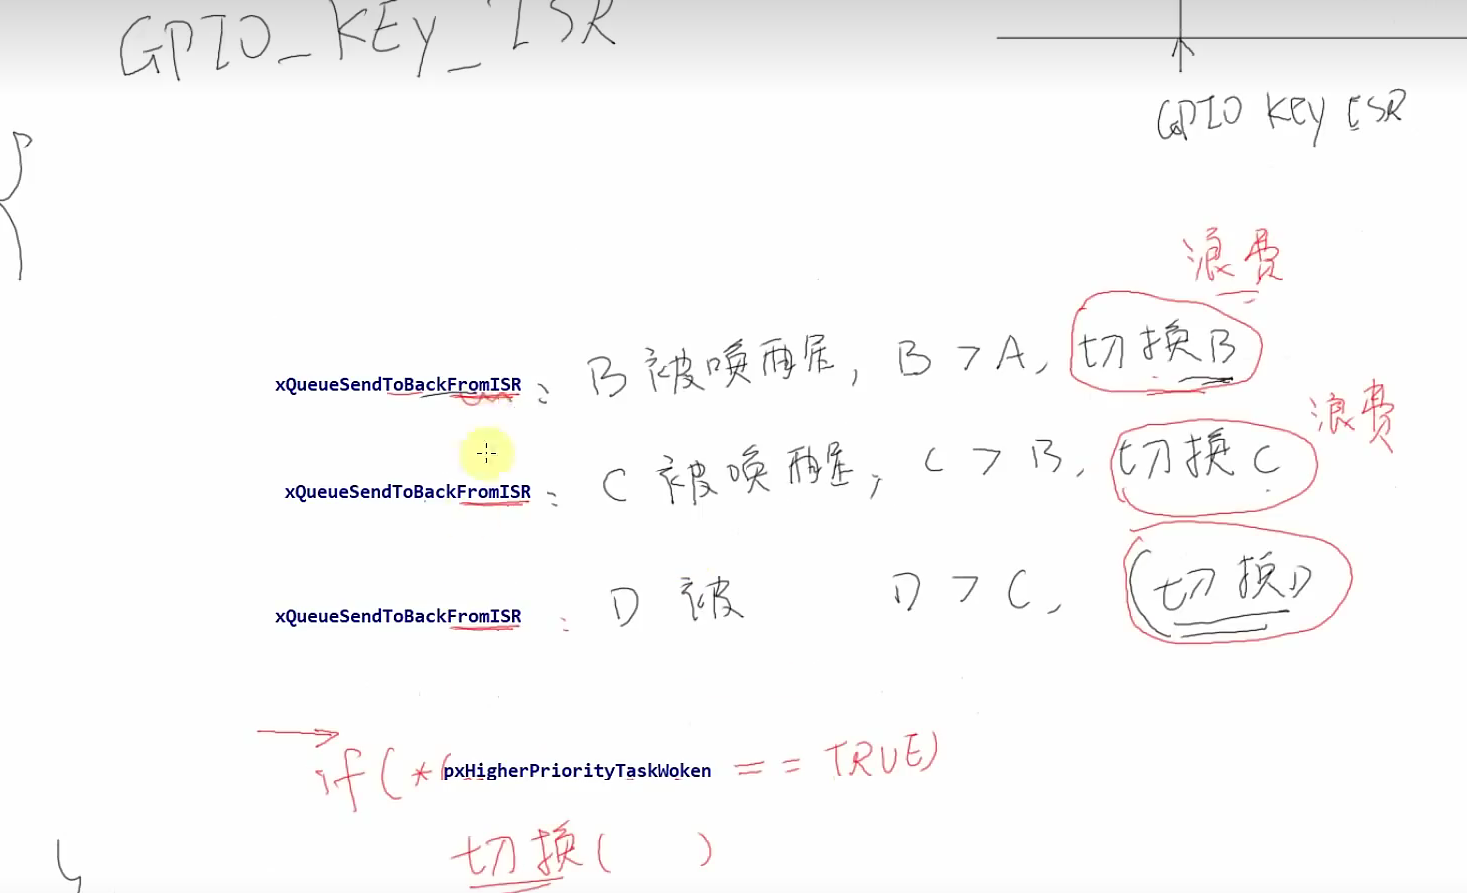 GPIO_KEY_ISR
GPIO KEY ISR
{
浪费
xQueueSendToBackFromISR: B被唤醒后, B > A, 切换B
浪费
xQueueSendToBackFromISR: C被唤醒后, C > B, 切换C
xQueueSendToBackFromISR: D被 D > C, (切换D
if(*(pxHigherPriorityTaskWoken == TRUE)
切换( )